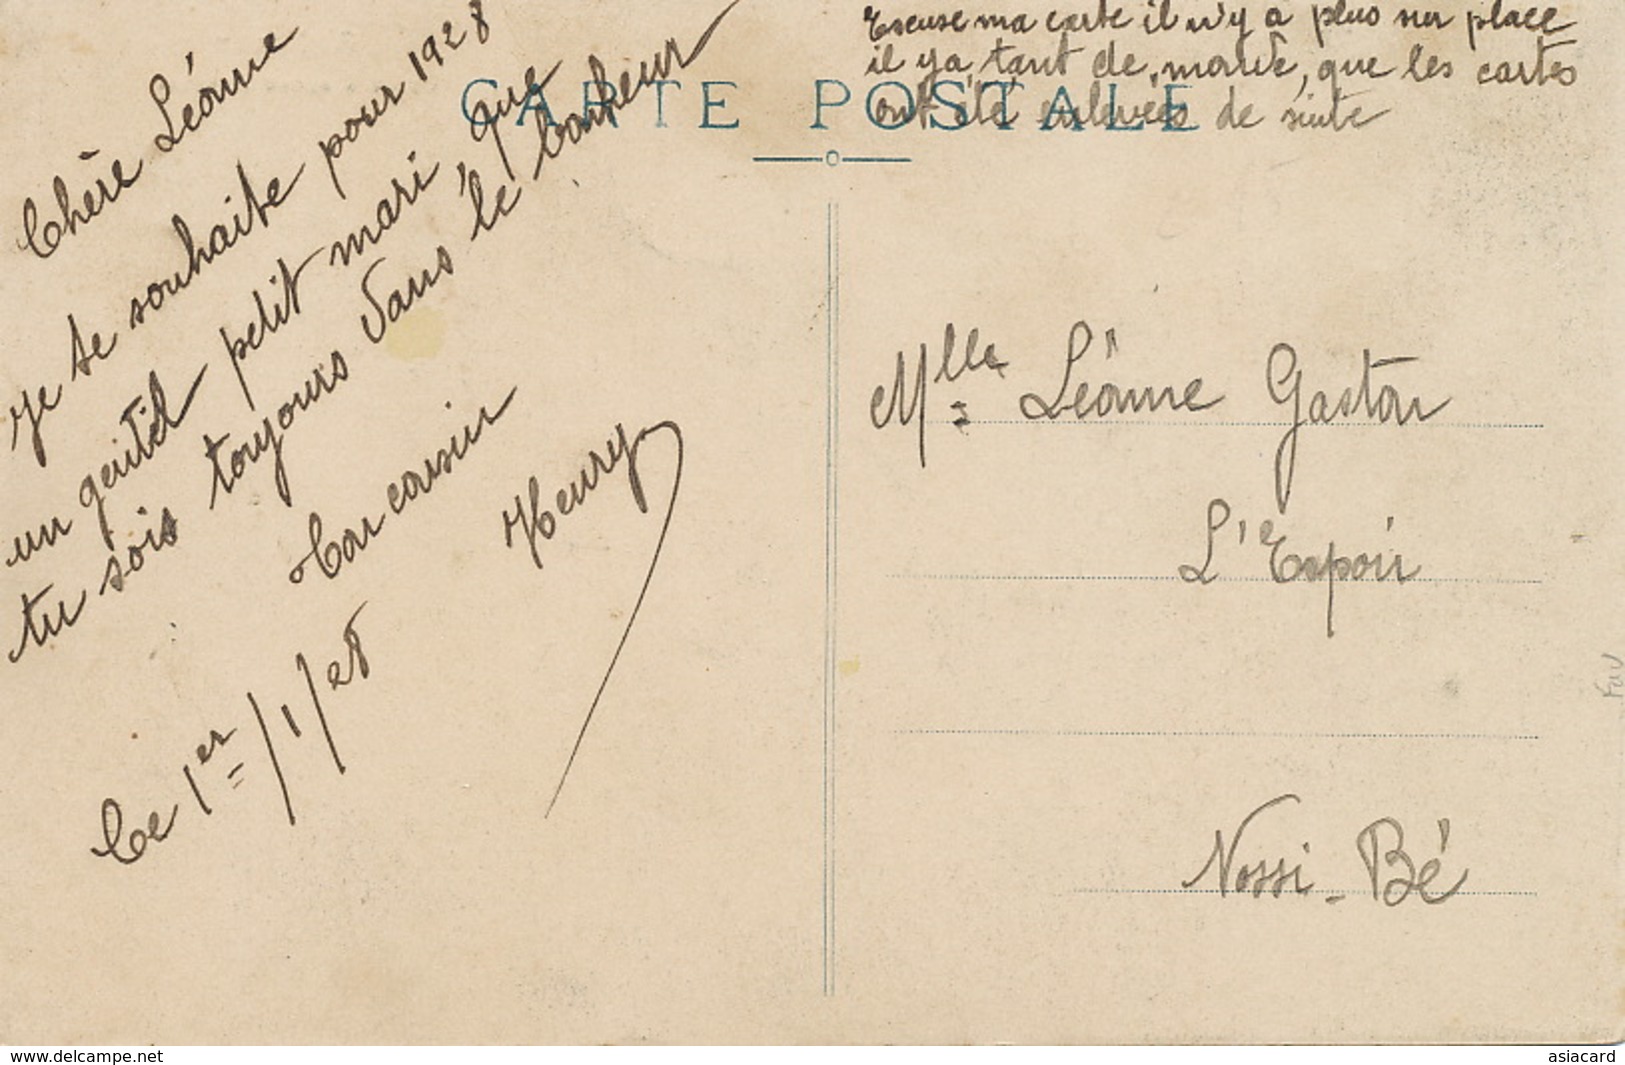 Excuse ma carte il n'y a plus sur place
il y a tant de monde, que les cartes
ont été enlevées de suite
CARTE POSTALE
Chère Léonne
Je te souhaite pour 1928
un gentil petit mari, que
tu sois toujours dans le bonheur
Ton cousin
Henry
Ce 1er/1/28
Mlle Léonne Gaston
L'Espoir
Nossi-Bé
Fav
www.delcampe.net
asiacard